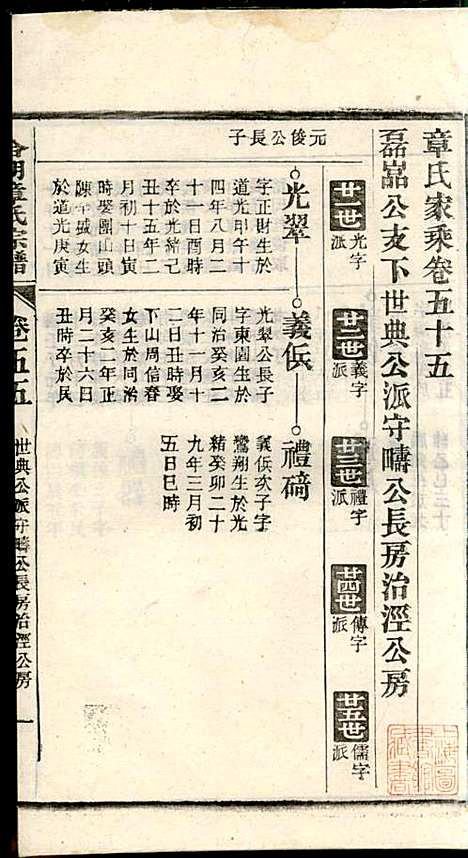 章氏家乘卷五十五
磊嵓公支下世典公派守疇公長房治涇公房
廿一世 光字派
廿二世 義字派
廿三世 禮字派
廿四世 傳字派
廿五世 儒字派
元俊公長子
光翠
字正財生於
道光甲午十
四年八月二
十一日酉時
卒於光緒己
丑十五年二
月初十日寅
時娶團山頭
陳 盛女生
於道光庚寅
義伥
光翠公長子
字東園生於
同治癸亥二
年十一月十
二日丑時娶
下山周信春
女生於同治
癸亥二年正
月二十六日
丑時卒於民
禮碕
義伥次子字
鷺翔生於光
緒癸卯二十
九年三月初
五日巳時
章氏宗譜
卷五五
世典公派守疇公長房治涇公房
一